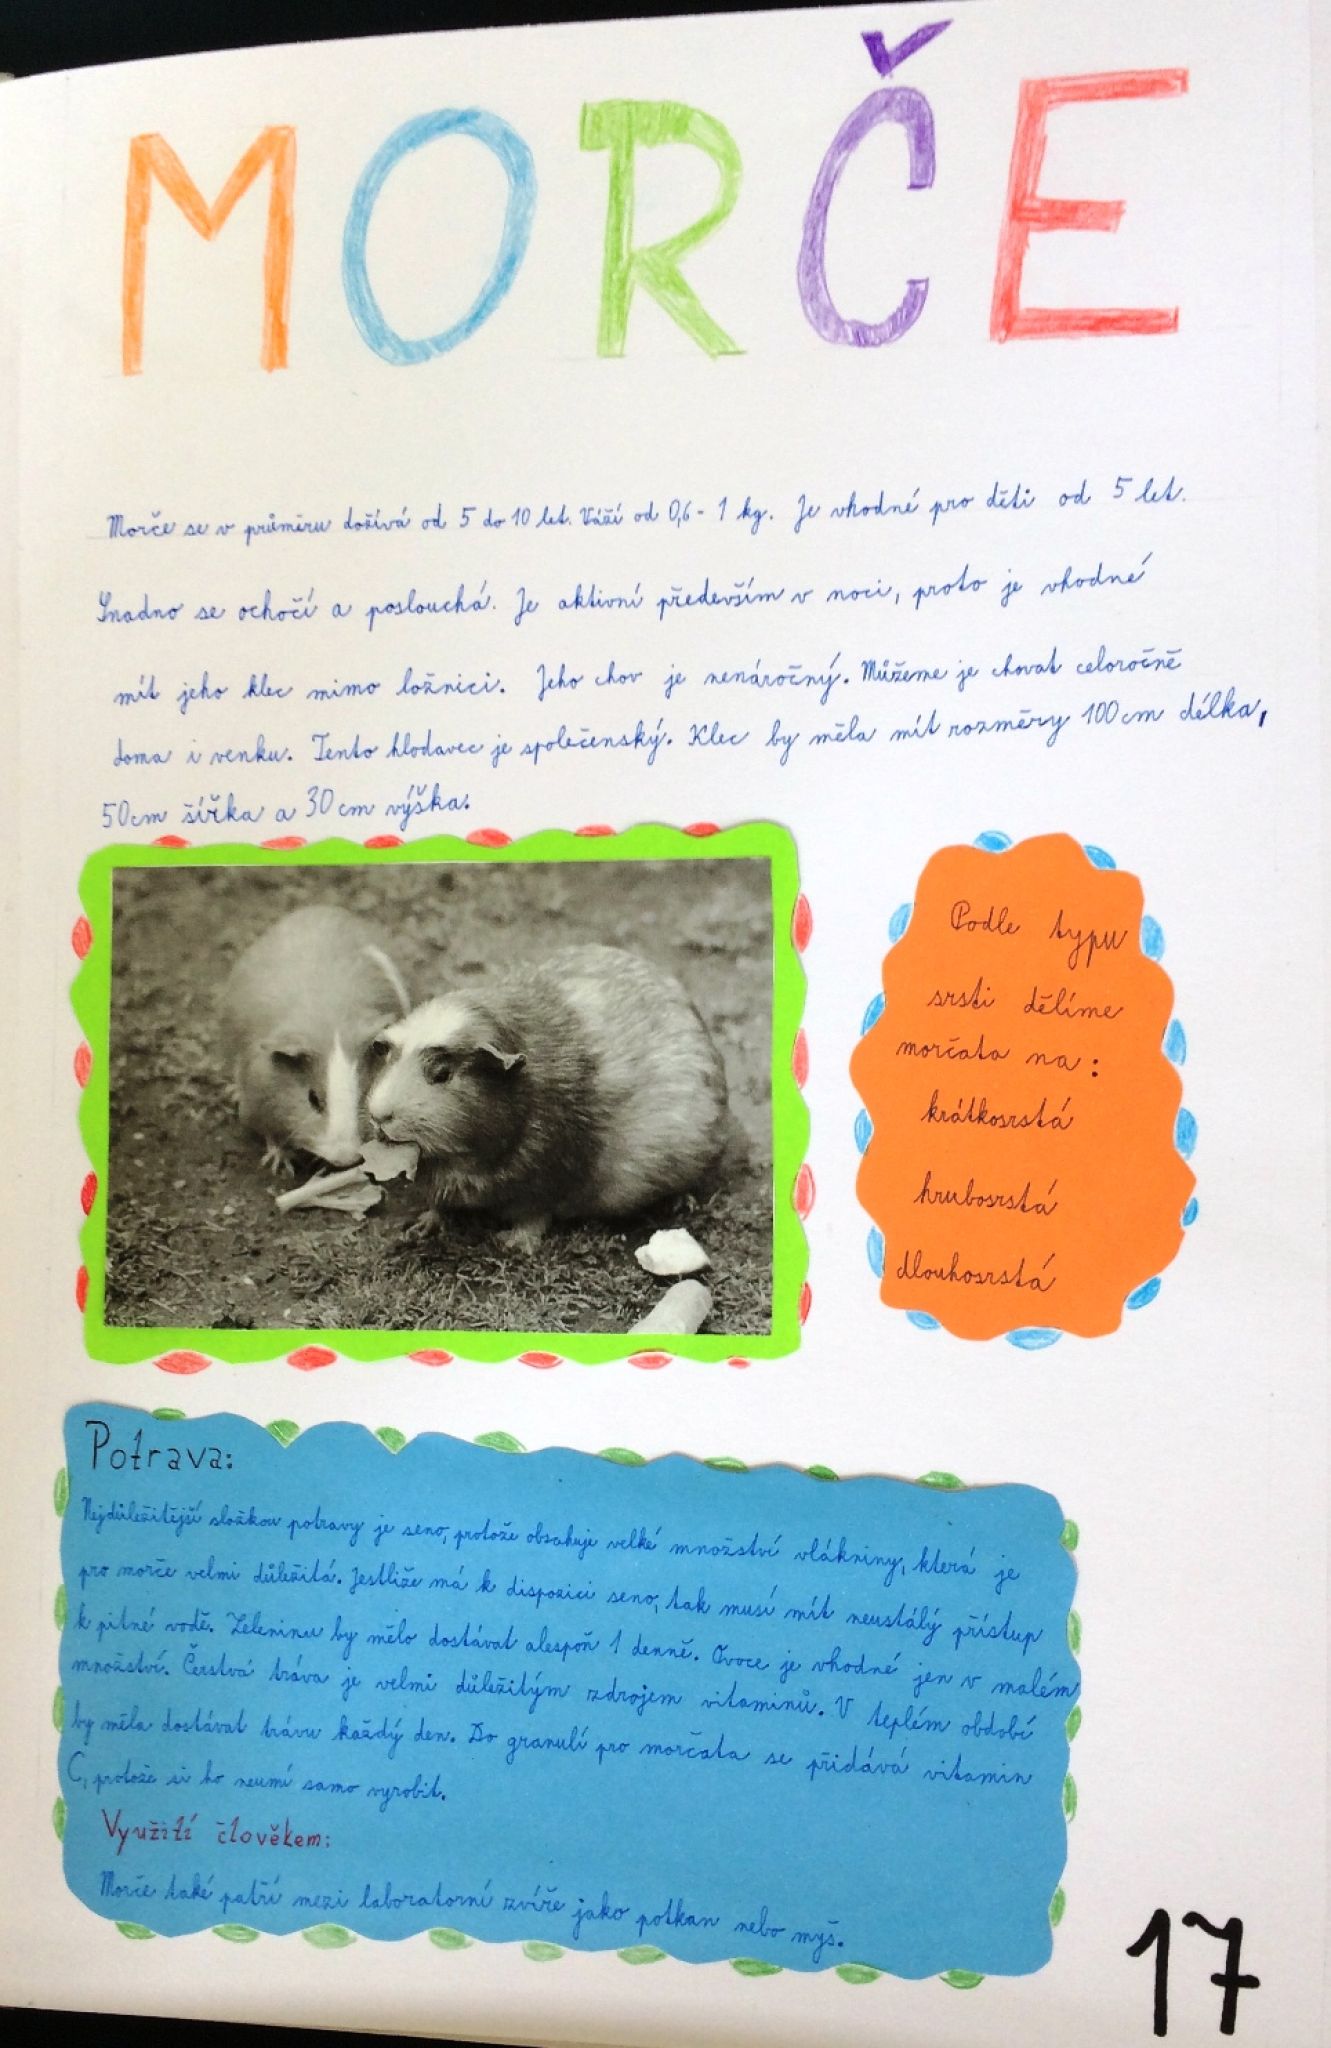 MORČE
Morče se v průměru dožívá od 5 do 10 let. Váží od 0,6 - 1 kg. Je vhodné pro děti od 5 let.
Snadno se ochočí a poslouchá. Je aktivní především v noci, proto je vhodné
mít jeho klec mimo ložnici. Jeho chov je nenáročný. Můžeme je chovat celoročně
doma i venku. Tento hlodavec je společenský. Klec by měla mít rozměry 100 cm délka,
50 cm šířka a 30 cm výška.
Podle typu
srsti dělíme
morčata na:
krátkosrstá
hrubosrstá
dlouhosrstá
Potrava:
Nejdůležitější složkou potravy je seno, protože obsahuje velké množství vlákniny, která je
pro morče velmi důležitá. Jestliže má k dispozici seno, tak musí mít neustálý přístup
k pitné vodě. Zeleninu by mělo dostávat alespoň 1 denně. Ovoce je vhodné jen v malém
množství. Čerstvá tráva je velmi důležitým zdrojem vitaminů. V teplém období
by měla dostávat trávu každý den. Do granulí pro morčata se přidává vitamin
C, protože si ho neumí samo vyrobit.
Využití člověkem:
Morče také patří mezi laboratorní zvíře jako potkan nebo myš.
17